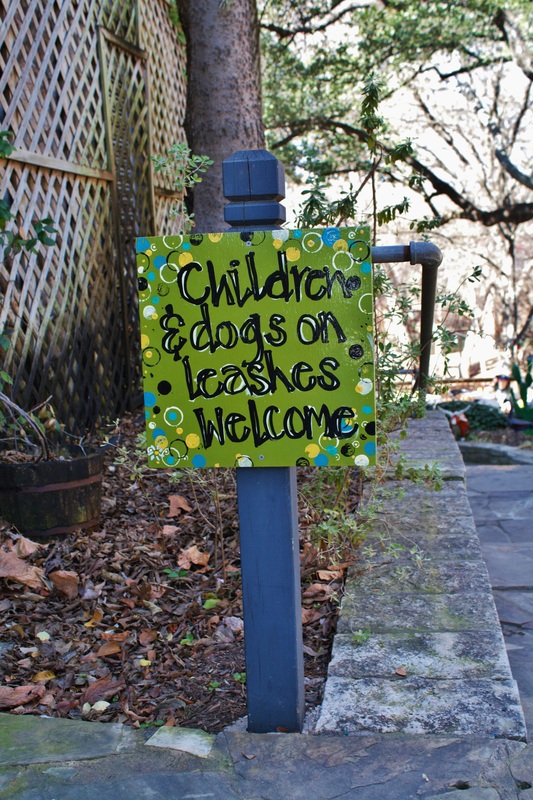 Children
& dogs on
leashes
Welcome